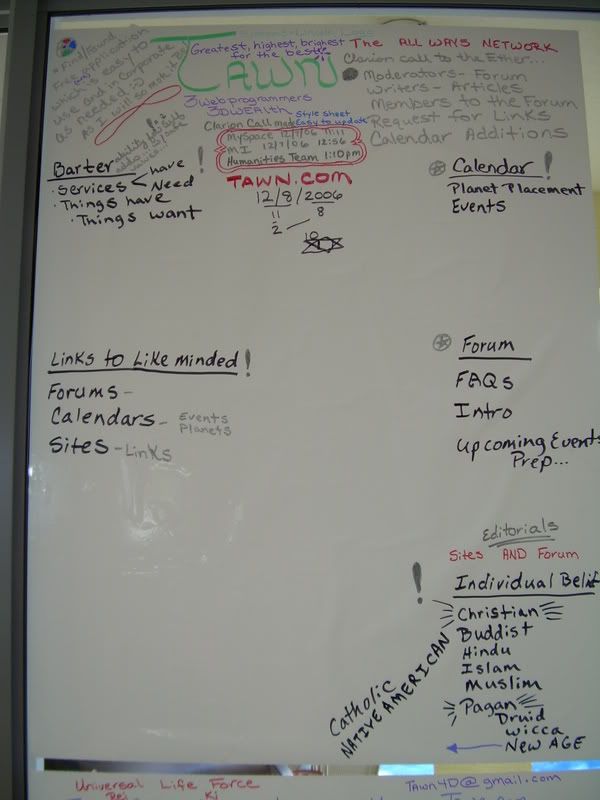 Greatest, highest, brightest
for the best
TAWN
* Find/Found
Free Application
which is easy to
use and incorporate
as needed
As I will so mote
3 Web programmers
3D WEALTH
Style sheet
Easy to update
Clarion Call made
MySpace 12/7/06 11:11
MI 12/7/06 12:56
Humanities Team 1:10pm
TAWN.COM
12/8/2006
11 8
2
10
The ALL WAYS NETWORK
Clarion call to the Ether...
Moderators - Forum
Writers - Articles
Members to the Forum
Request for Links
Calendar Additions
Barter !
· Services < have
Need
· Things have
· Things want
Calendar !
Planet Placement
Events
Links to Like minded !
Forums -
Calendars - Events
Planets
Sites - Links
Forum
FAQs
Intro
Upcoming Events
Prep...
Editorials
Sites AND Forum
! Individual Belief
Christian
Buddist
Hindu
Islam
Muslim
Pagan
Druid
Wicca
New AGE
Catholic
NATIVE AMERICAN
Universal Life Force
Rei Ki
TAWN4D@gmail.com